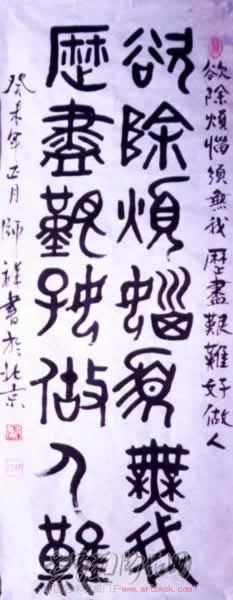 欲除煩惱須無我歷盡艱難好做人
欲除煩惱須無我
歷盡艱好做人難
癸未年正月師祥書於北京
门户 www.artokok.com